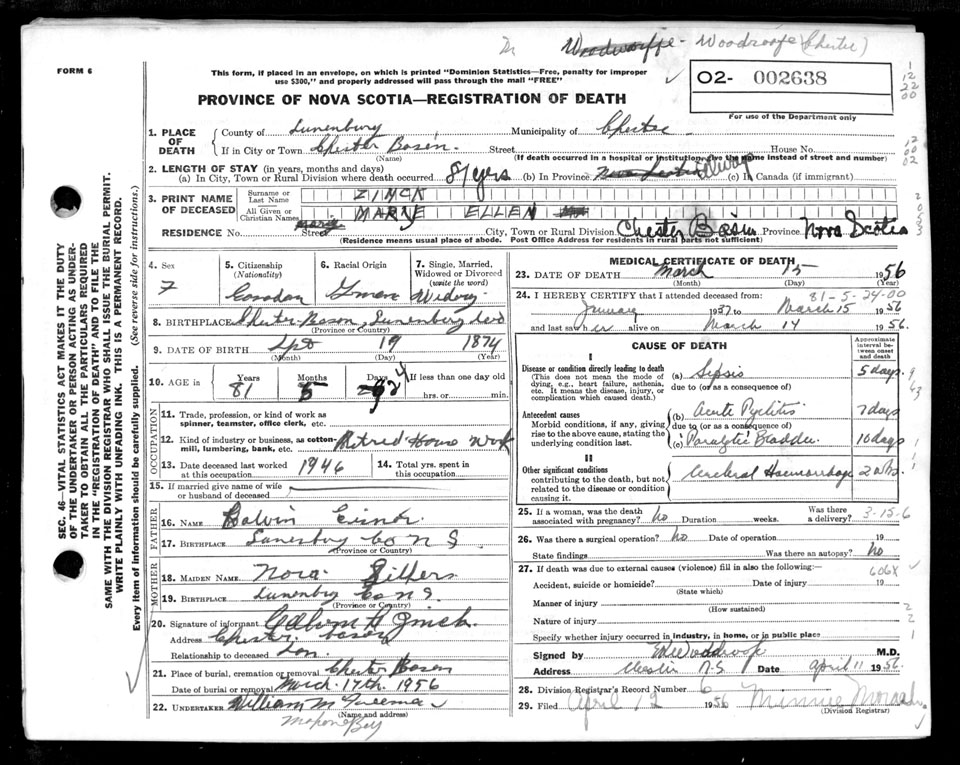 Woodworffe - Woodroofe (Chester)
FORM 6
This form, if placed in an envelope, on which is printed "Dominion Statistics—Free, penalty for improper
use $300," and properly addressed will pass through the mail "FREE"
02- 002638
For use of the Department only
PROVINCE OF NOVA SCOTIA—REGISTRATION OF DEATH
1. PLACE OF DEATH
County of Lunenburg Municipality of Chester
If in City or Town Chester Basin. Street House No.
(Name) (If death occurred in a hospital or institution, give the name instead of street and number)
2. LENGTH OF STAY (in years, months and days)
(a) In City, Town or Rural Division where death occurred 81 yrs (b) In Province (c) In Canada (if immigrant)
3. PRINT NAME OF DECEASED
Surname or Last Name ZINCK
All Given or Christian Names MARYE ELLEN
RESIDENCE No. Street City, Town or Rural Division Chester Basin Province Nova Scotia
(Residence means usual place of abode. Post Office Address for residents in rural parts not sufficient)
SEC. 46—VITAL STATISTICS ACT MAKES IT THE DUTY
OF THE UNDERTAKER OR PERSON ACTING AS UNDER-
TAKER TO OBTAIN ALL THE PARTICULARS REQUIRED
IN THE "REGISTRATION OF DEATH" AND TO FILE THE
SAME WITH THE DIVISION REGISTRAR WHO SHALL ISSUE THE BURIAL PERMIT.
WRITE PLAINLY WITH UNFADING INK. THIS IS A PERMANENT RECORD.
Every item of information should be carefully supplied. (See reverse side for instructions.)
4. Sex
F
5. Citizenship
(Nationality)
Canadan
6. Racial Origin
German
7. Single, Married,
Widowed or Divorced
(write the word)
Widow
8. BIRTHPLACE Chester Basin, Lunenburg
(Province or Country)
9. DATE OF BIRTH Sept 19 1874
(Month) (Day) (Year)
10. AGE in Years Months Days If less than one day old
81 5 24 hrs. or min.
OCCUPATION
11. Trade, profession, or kind of work as
spinner, teamster, office clerk, etc.
12. Kind of industry or business, as cotton-
mill, lumbering, bank, etc. Retired House Work
13. Date deceased last worked
at this occupation 1946
14. Total yrs. spent in
this occupation
15. If married give name of wife
or husband of deceased
FATHER
16. NAME Calvin
17. BIRTHPLACE Lunenburg Co N S
(Province or Country)
MOTHER
18. MAIDEN NAME Nora
19. BIRTHPLACE Lunenbrg Co N S
(Province or Country)
20. Signature of informant Calvin H Zinck
Address Chester Basin
Relationship to deceased Son.
21. Place of burial, cremation or removal Chester Basin
Date of burial or removal March 17th 1956
22. UNDERTAKER William M
(Name and address)
Mahone Bay
MEDICAL CERTIFICATE OF DEATH
23. DATE OF DEATH March 15 1956
(Month) (Day) (Year)
81-5-24-00
24. I HEREBY CERTIFY that I attended deceased from:
January 1937 to March 15 1956
and last saw her alive on March 14 1956.
CAUSE OF DEATH
Approximate
interval be-
tween onset
and death
I
Disease or condition directly leading to death
(This does not mean the mode of
dying, e.g., heart failure, asthenia,
etc. It means the disease, injury, or
complication which caused death.)
(a) Sepsis 5 days
due to (or as a consequence of)
Antecedent causes
Morbid conditions, if any, giving
rise to the above cause, stating the
underlying condition last.
(b) Acute Pyelitis 7 days
due to (or as a consequence of)
(c) Paralytic Bladder. 10 days
II
Other significant conditions
contributing to the death, but not
related to the disease or condition
causing it.
Cerebral Haemorrhage 2 wks.
25. If a woman, was the death
associated with pregnancy? No Duration weeks. Was there
a delivery? 3-15-6
26. Was there a surgical operation? No Date of operation 19
State findings Was there an autopsy? No
27. If death was due to external causes (violence) fill in also the following:—
606X
Accident, suicide or homicide? Date of injury 19
(State which)
Manner of injury
(How sustained)
Nature of injury
Specify whether injury occurred in industry, in home, or in public place
Signed by M.D.
Address Chester N.S. Date April 11 1956.
28. Division Registrar's Record Number 6
29. Filed April 12 1956 Minnie
(Division Registrar)